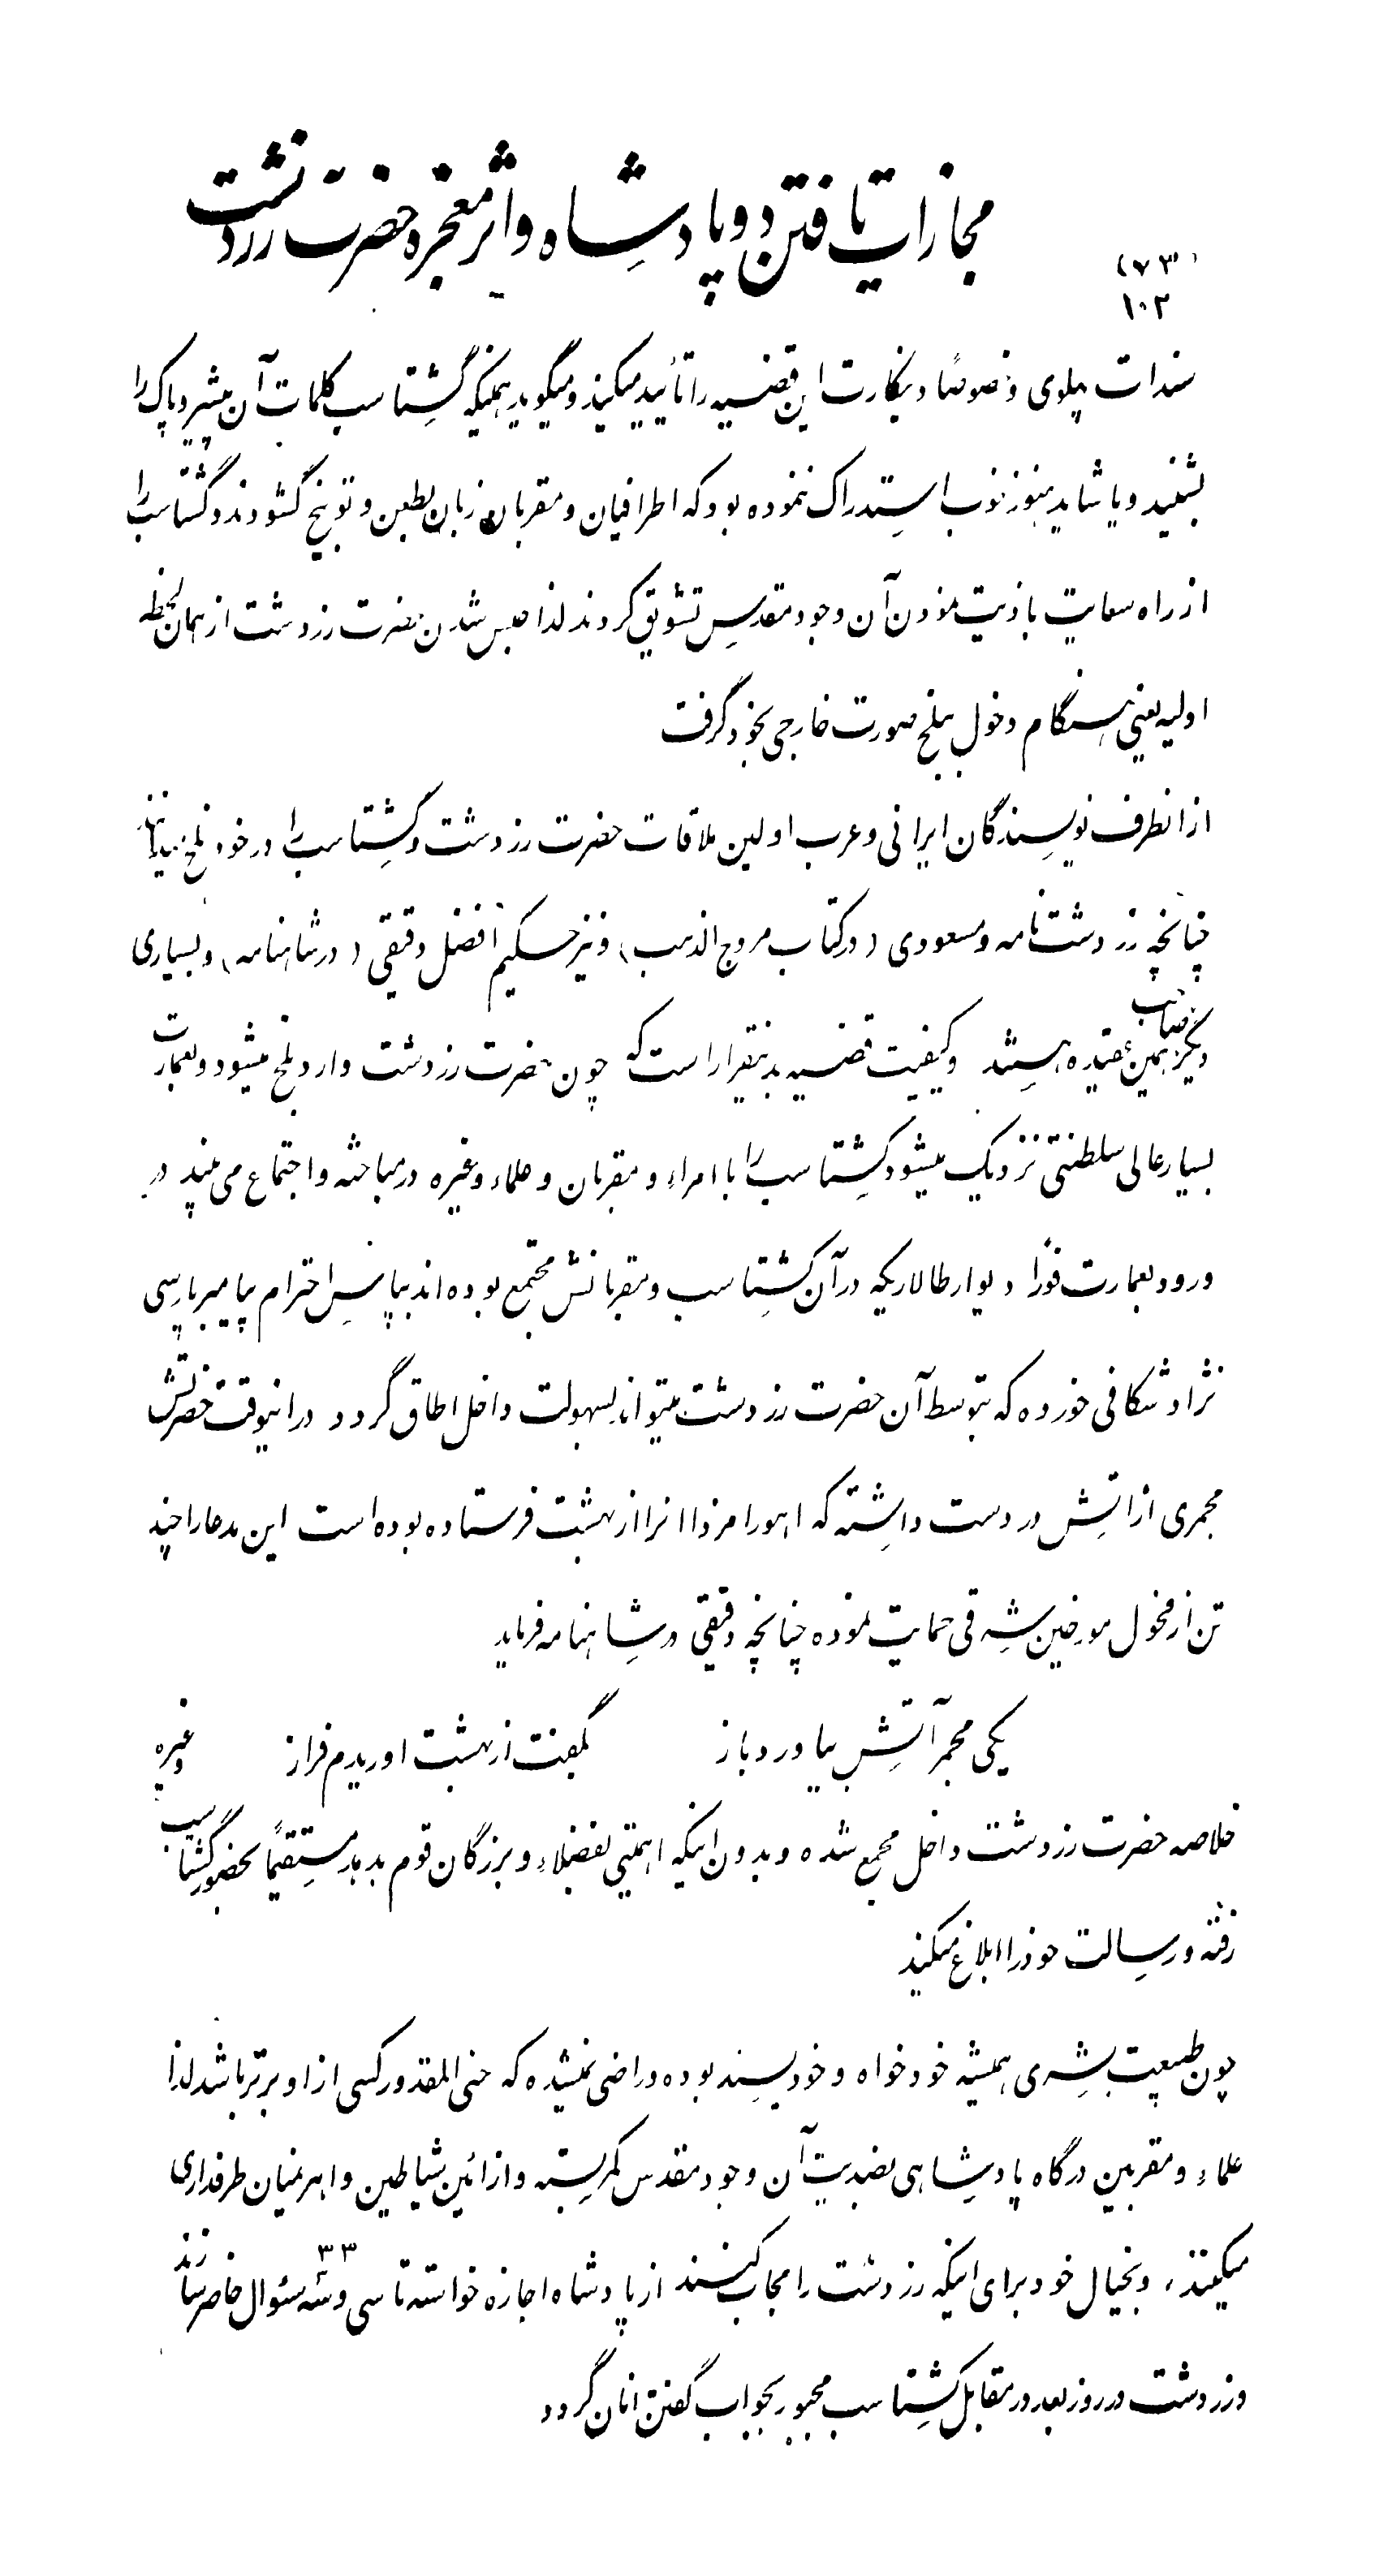 مجازات یافتن دو پادشاه واثر معجزه حضرت زردشت
(۷۳)
۱۰۲
سندات پهلوی وخصوصًا دینکارت این قضیه را تأیید میکند ومیگوید همینکه گشتاسب کلمات آن پیشرو پاک را
بشنید ویا شاید هنوز خوب استدراک ننموده بود که اطرافیان ومقربان زبان بطعن وتوبیخ گشودند وگشتاسب را
از راه سعایت باذیت نمودن آن وجود مقدس تشویق کردند لذا حبس شدن حضرت زردشت از همان لحظه
اولیه یعنی هنگام دخول ببلخ صورت خارجی بخود گرفت
ازانطرف نویسندگان ایرانی وعرب اولین ملاقات حضرت زردشت وگشتاسب را در خود بلخ میدانند
چنانچه زردشت نامه ومسعودی (در کتاب مروج الذهب) ونیز حکیم افضل دقیقی (در شاهنامه) وبسیاری
دیگر بهمین عقیده هستند وکیفیت قضیه بدینقرار است که چون حضرت زردشت وارد بلخ میشود وبعمارت
بسیار عالی سلطنتی نزدیک میشود گشتاسب را با امراء ومقربان وعلماء وغیره در مباحثه واجتماع می بیند در
ورود بعمارت فورًا دیوار طالاریکه در آن گشتاسب ومقربانش مجتمع بوده اند بپاس احترام پیامبر پارسی
نژاد شکافی خورده که بتوسط آن حضرت زردشت میتواند بسهولت داخل اطاق گردد در اینوقت حضرتش
مجمری از اتش در دست داشته که اهورامزدا انرا از بهشت فرستاده بوده است این مدعا را چند
تن از فحول مورخین شرقی حمایت نموده چنانچه دقیقی در شاهنامه فرماید
یکی مجمر آتش بیاورد باز بگفت از بهشت اوریدم فراز وغیره
خلاصه حضرت زردشت داخل مجمع شده وبدون اینکه اهمیتی بفضلاء وبزرگان قوم بدهد مستقیمًا بحضور گشتاسب
رفته ورسالت خود را ابلاغ میکند
چون طبیعت بشری همیشه خودخواه وخودپسند بوده وراضی نمیشده که حتی المقدور کسی از او برتر باشد لذا
علماء ومقربین درگاه پادشاهی بضدیت آن وجود مقدس کمر بسته واز ائین شیاطین واهرمنیان طرفداری
میکنند، وبخیال خود برای اینکه زردشت را مجاب کنند از پادشاه اجازه خواسته تا سی وسه ۳۳ سئوال حاضر سازند
وزردشت در روز بعد در مقابل گشتاسب مجبور بجواب گفتن انان گردد